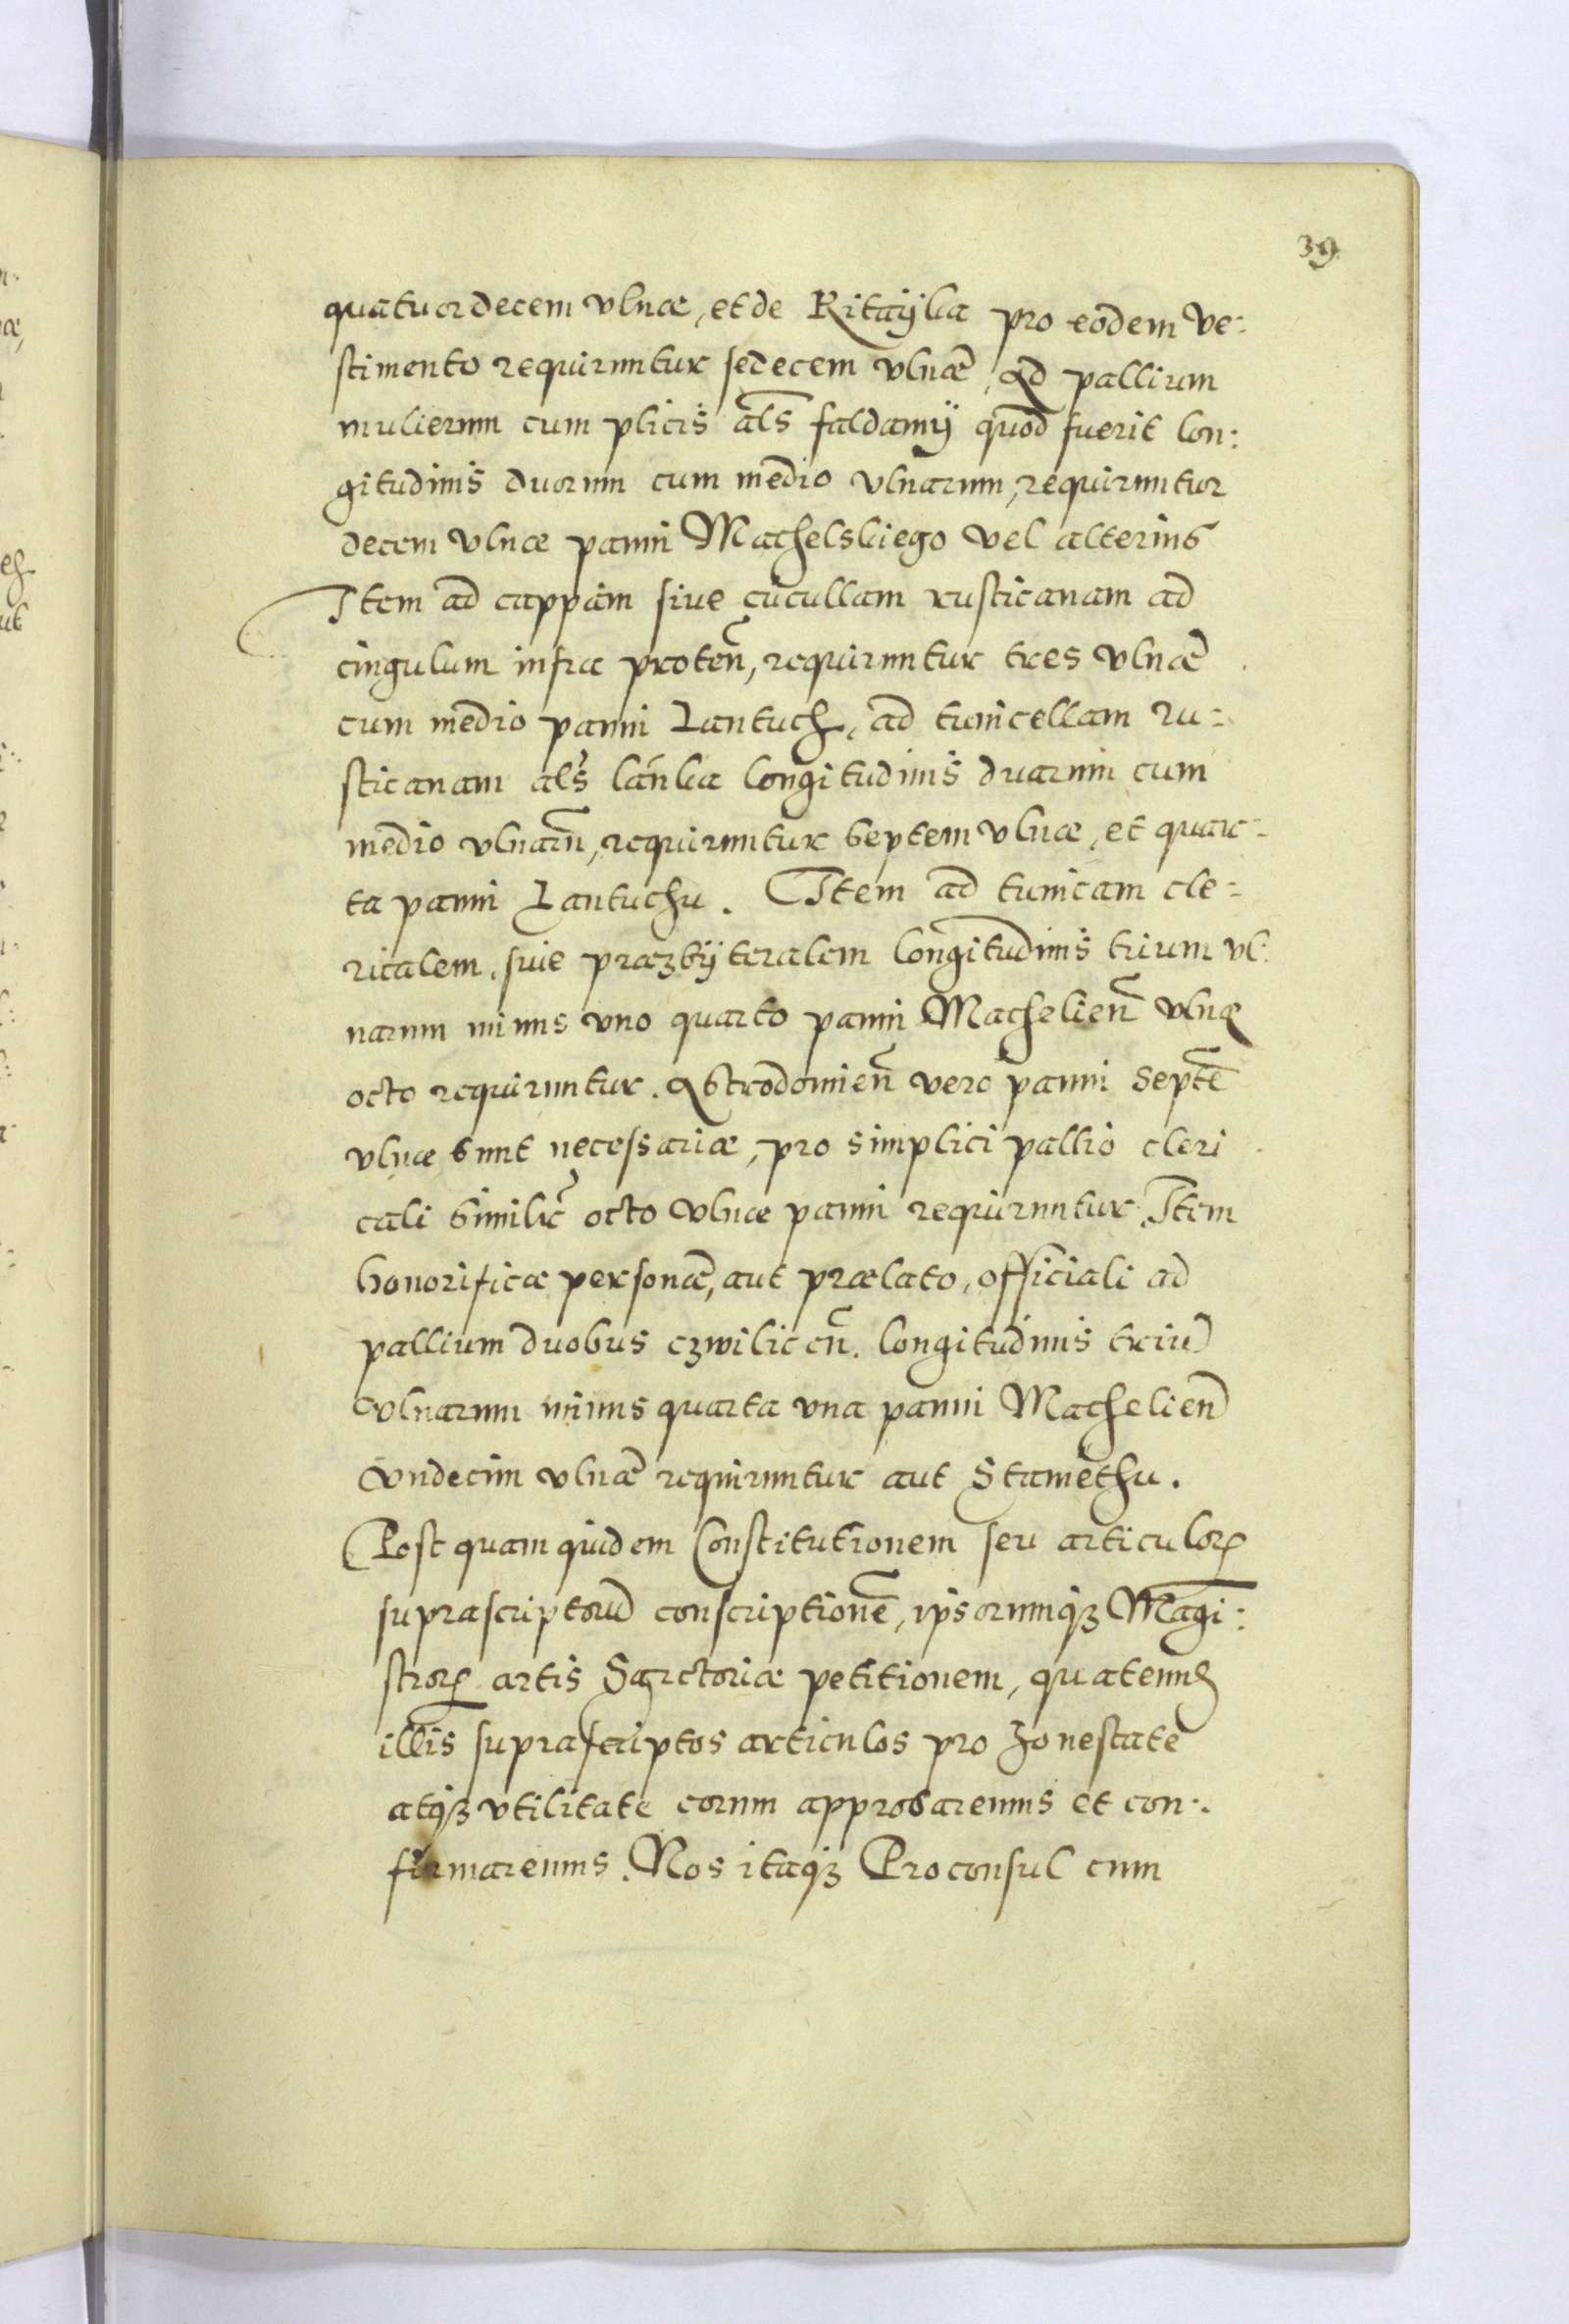 39
quatuordecem vlnæ, et de Kitaÿka pro eodem ve:
stimento requiruntur sedecem vlnæ, Ad pallium
mulierum cum plicis als faldamÿ quod fuerit lon:
gitudinis duorum cum medio vlnarum, requiruntur
decem vlnæ panni Machelskiego vel alterius
Item ad cappam siue cucullam rusticanam ad
cingulum infra proten, requiruntur tres vlnæ
cum medio panni Lantuch, ad tunicellam ru:
sticanam als lánka longitudinis duarum cum
medio vlnarū, requiruntur septem vlnæ, et quar:
ta panni Lantuchu. Item ad tunicam cle:
ricalem, siue præzbÿteralem longitudinis trium vl:
narum minus vno quarto panni Machelień vlnæ
octo requiruntur. Ostrodomień vero panni septē
vlnæ sunt necessariæ, pro simplici pallio cleri
cali similiť octo vlnæ panni requiruntur, Item
honorificæ personæ, aut prælato, officiali ad
pallium duobus czwilic cū. longitudinis triū
vlnarum minus quarta vna panni Machelień
vndecim vlnæ requiruntur aut Stamethu.
Post quam quidem Constitutionem seu articuloꝝ
suprascriptorū conscriptionē, ipsorumqꝫ Magi:
stroꝝ artis Sarctoriæ petitionem, quatenus
illis suprascriptos articulos pro honestate
atqꝫ vtilitate eorum approbaremus et con:
firmaremus. Nos itaqꝫ Proconsul cum